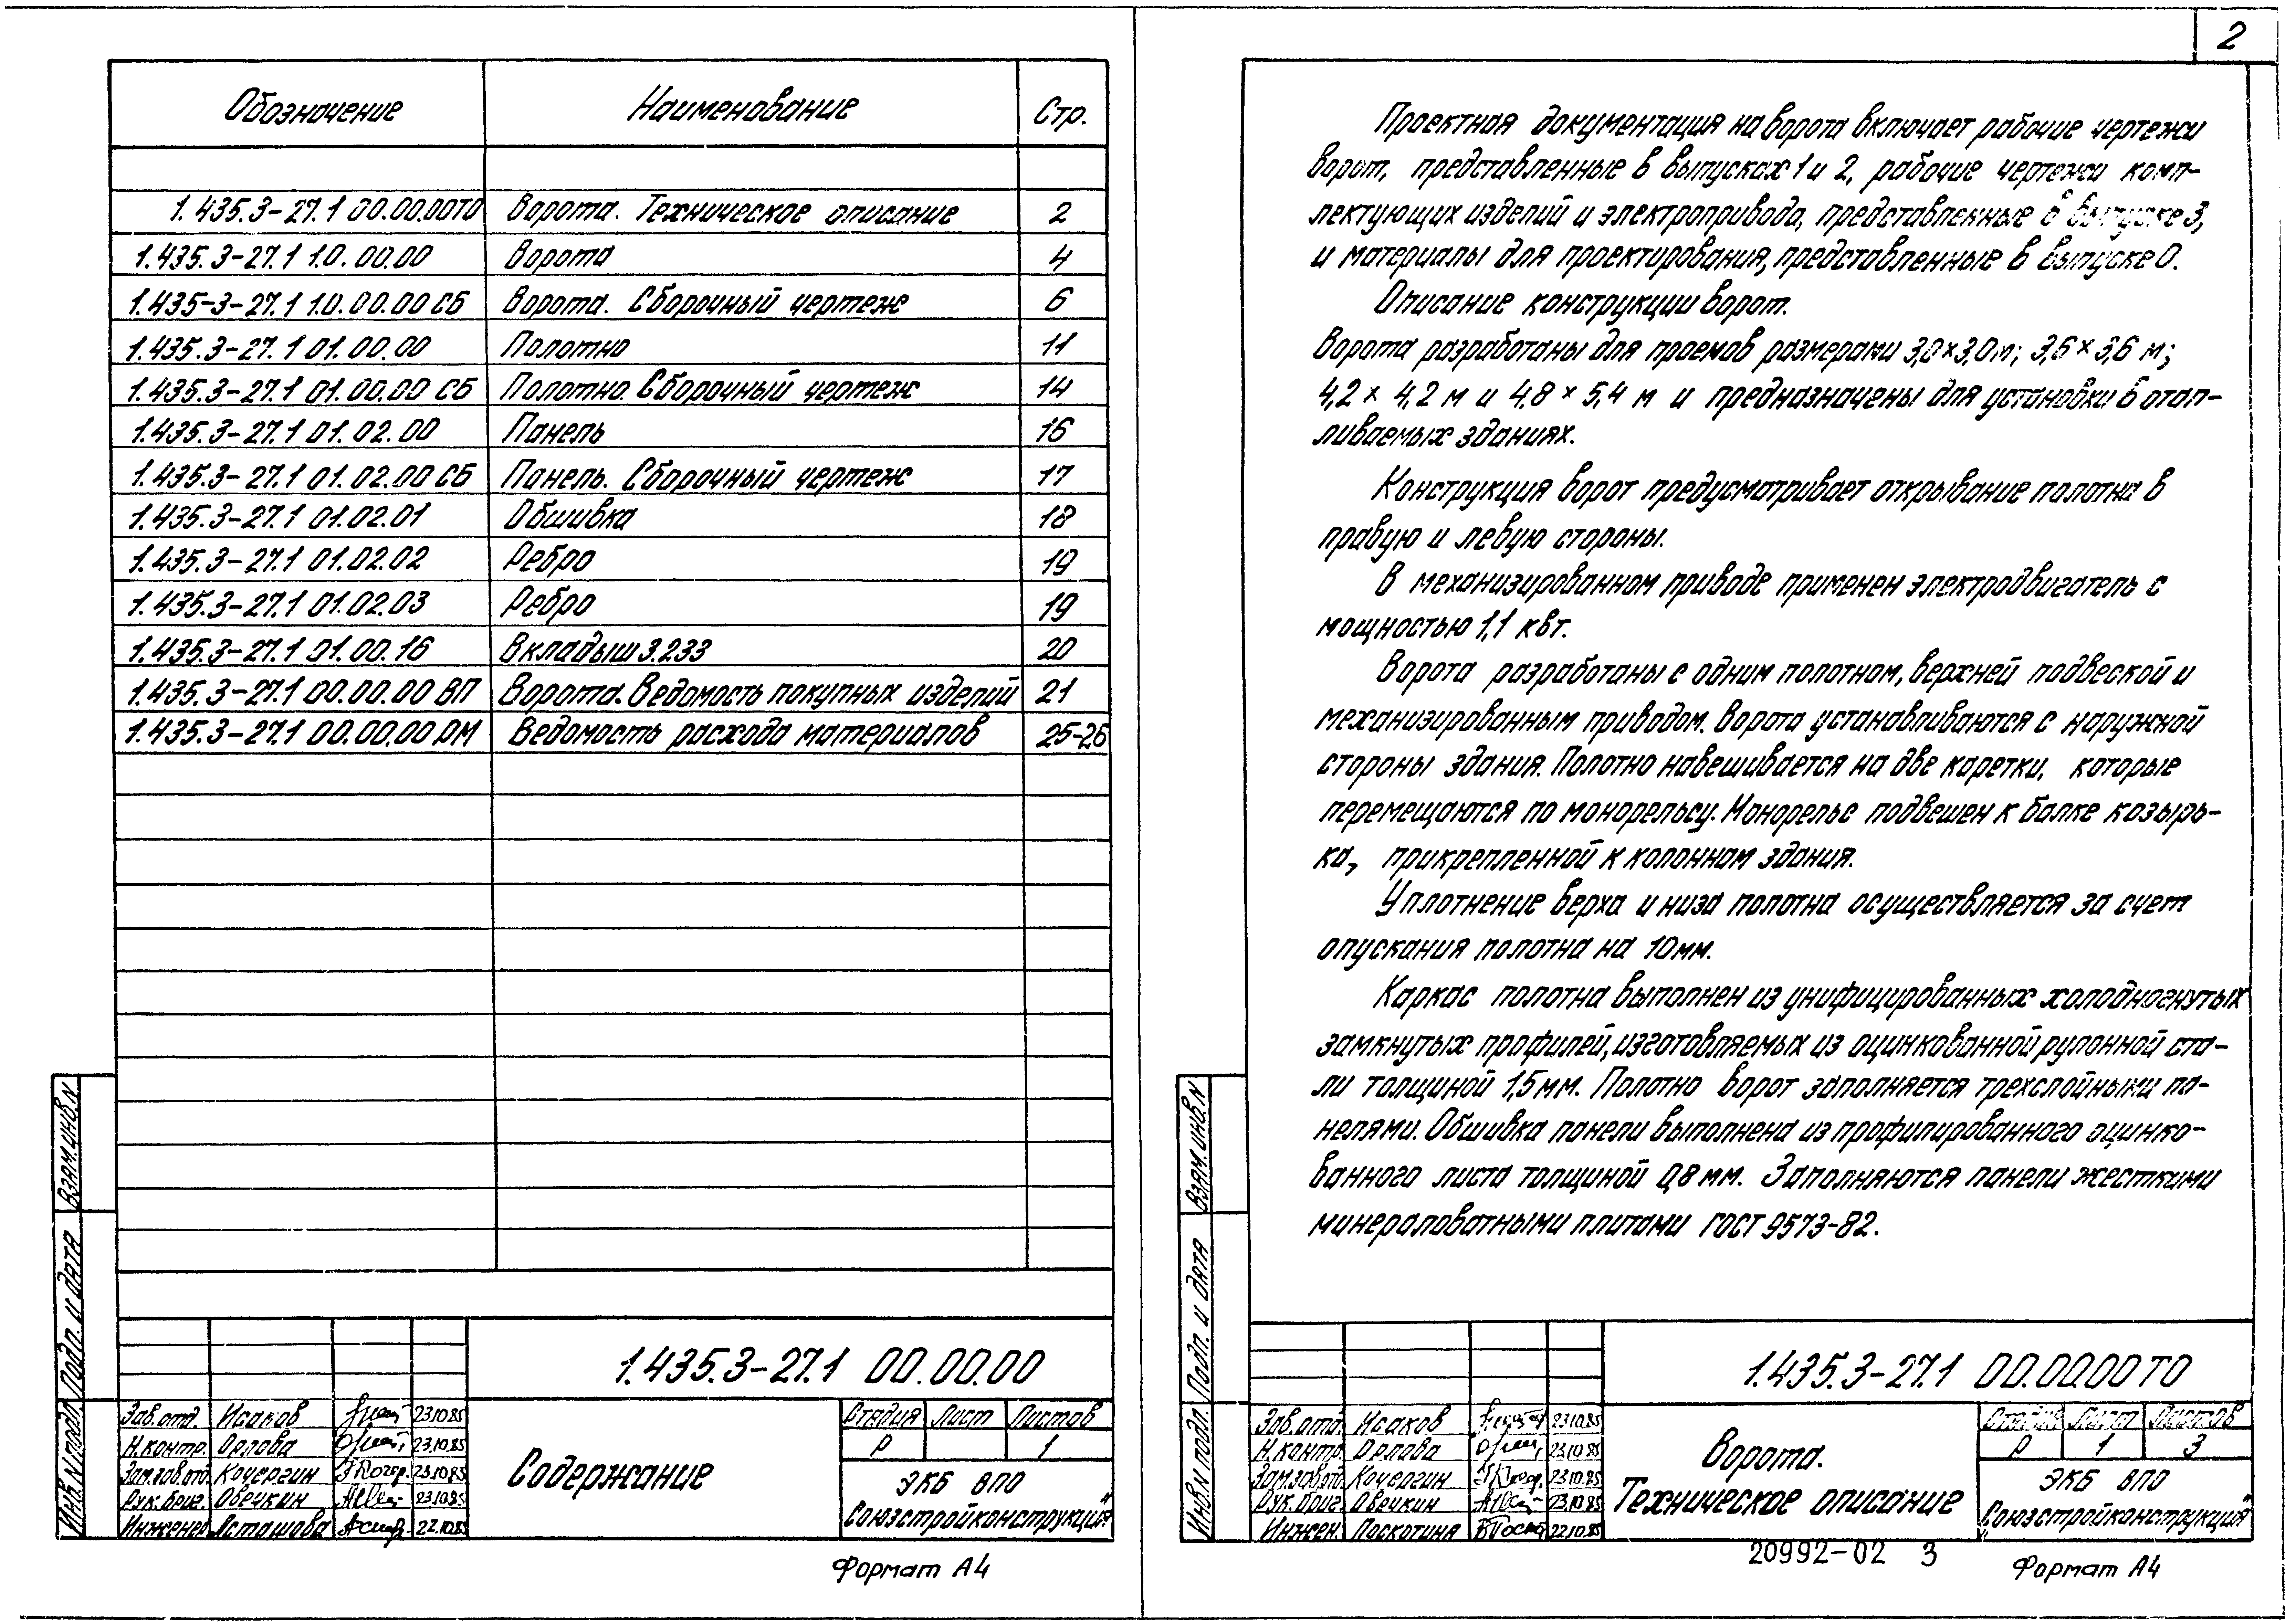 Обозначение Наименование Стр.
1.435.3-27.1 00.00.00ТО Ворота. Техническое описание 2
1.435.3-27.1 1.0.00.00 Ворота 4
1.435-3-27.1 1.0.00.00 СБ Ворота. Сборочный чертеж 6
1.435.3-27.1 01.00.00 Полотно 11
1.435.3-27.1 01.00.00 СБ Полотно. Сборочный чертеж 14
1.435.3-27.1 01.02.00 Панель 16
1.435.3-27.1 01.02.00 СБ Панель. Сборочный чертеж 17
1.435.3-27.1 01.02.01 Обшивка 18
1.435.3-27.1 01.02.02 Ребро 19
1.435.3-27.1 01.02.03 Ребро 19
1.435.3-27.1 01.00.16 Вкладыш 3.233 20
1.435.3-27.1 00.00.00 ВП Ворота. Ведомость покупных изделий 21
1.435.3-27.1 00.00.00 РМ Ведомость расхода материалов 25-26
Взам.инв.N
Подп. и дата
Инв.N подл.
1.435.3-27.1 00.00.00
Зав.отд. Исаков 23.10.85
Н.контр. Орлова 23.10.85
Зам.зав.отд. Кочергин 23.10.85
Рук.бриг. Овечкин 23.10.85
Инженер Осташова 22.10.85
Содержание
Стадия Лист Листов
Р 1
ЭКБ ВПО
Союзстройконструкция"
Формат А4
2
Проектная документация на ворота включает рабочие чертежи
ворот, представленные в выпусках 1 и 2, рабочие чертежи комп-
лектующих изделий и электропривода, представленные в выпуске 3,
и материалы для проектирования, представленные в выпуске 0.
Описание конструкции ворот.
Ворота разработаны для проемов размерами 3,0×3,0м; 3,6×3,6 м;
4,2 × 4,2 м и 4,8 × 5,4 м и предназначены для установки в отап-
ливаемых зданиях.
Конструкция ворот предусматривает открывание полотна в
правую и левую стороны.
В механизированном приводе применен электродвигатель с
мощностью 1,1 квт.
Ворота разработаны с одним полотном, верхней подвеской и
механизированным приводом. Ворота устанавливаются с наружной
стороны здания. Полотно навешивается на две каретки, которые
перемещаются по монорельсу. Монорельс подвешен к балке козырь-
ка, прикрепленной к колоннам здания.
Уплотнение верха и низа полотна осуществляется за счет
опускания полотна на 10мм.
Каркас полотна выполнен из унифицированных холодногнутых
замкнутых профилей, изготовляемых из оцинкованной рулонной ста-
ли толщиной 1,5мм. Полотно ворот заполняется трехслойными па-
нелями. Обшивка панели выполнена из профилированного оцинко-
ванного листа толщиной 0,8 мм. Заполняются панели жесткими
минераловатными плитами ГОСТ 9573-82.
Взам.инв.N
Подп. и дата
Инв.N подл.
1.435.3-27.1 00.00.00ТО
Зав.отд. Исаков 23.10.85
Н.контр. Орлова 23.10.85
Зам.зав.отд. Кочергин 23.10.85
Рук.бриг. Овечкин 23.10.85
Инжен. Поскотина 22.10.85
Ворота.
Техническое описание
Стадия Лист Листов
Р 1 3
ЭКБ ВПО
"Союзстройконструкция"
20992-02 3
Формат А4